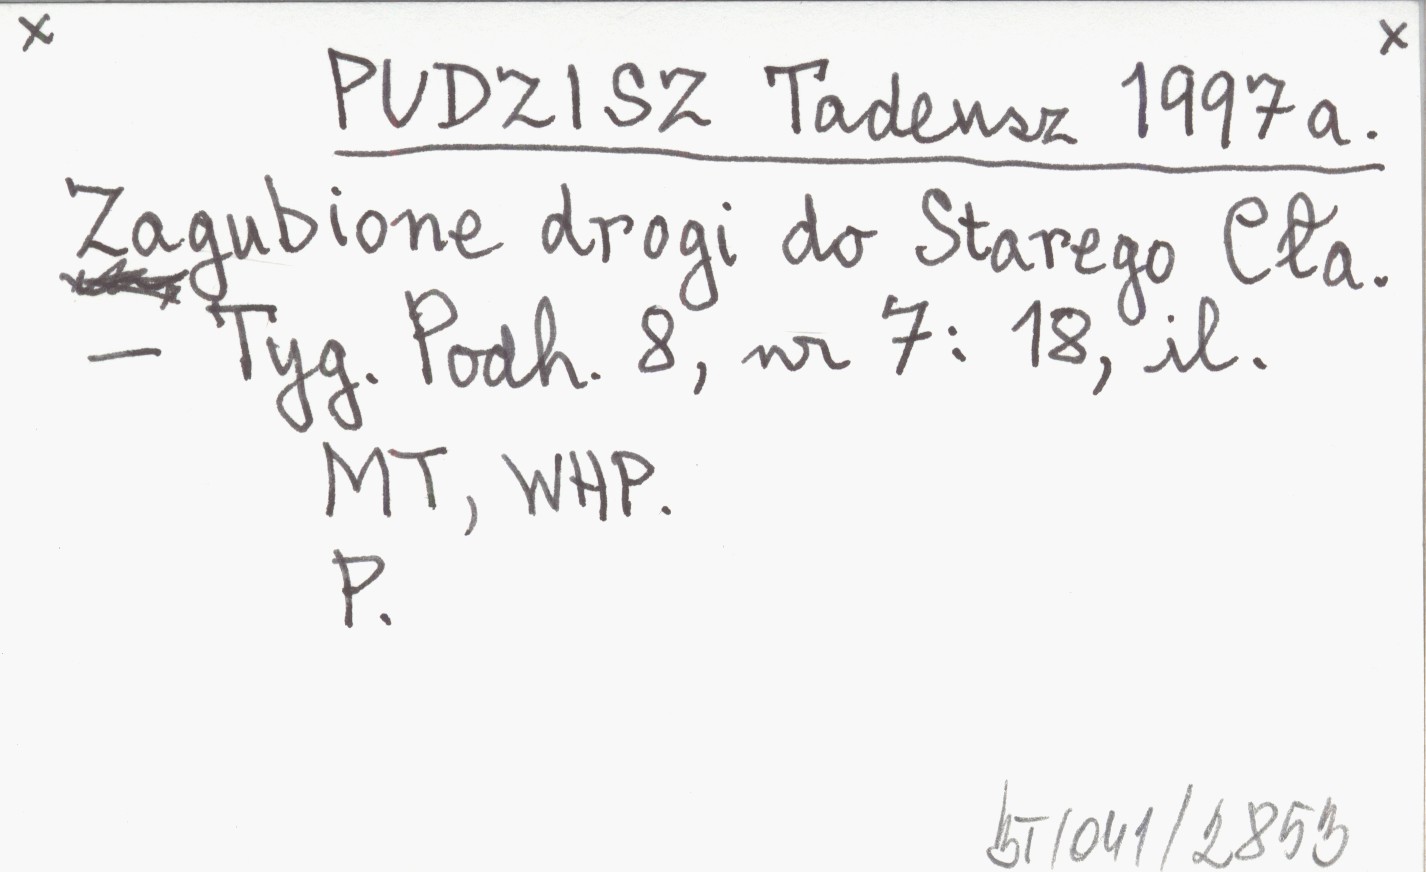 x x
PUDZISZ Tadeusz 1997a.
Zagubione drogi do Starego Cła.
— Tyg. Podh. 8, nr 7: 18, il.
MT, WHP.
P.
/041/2853